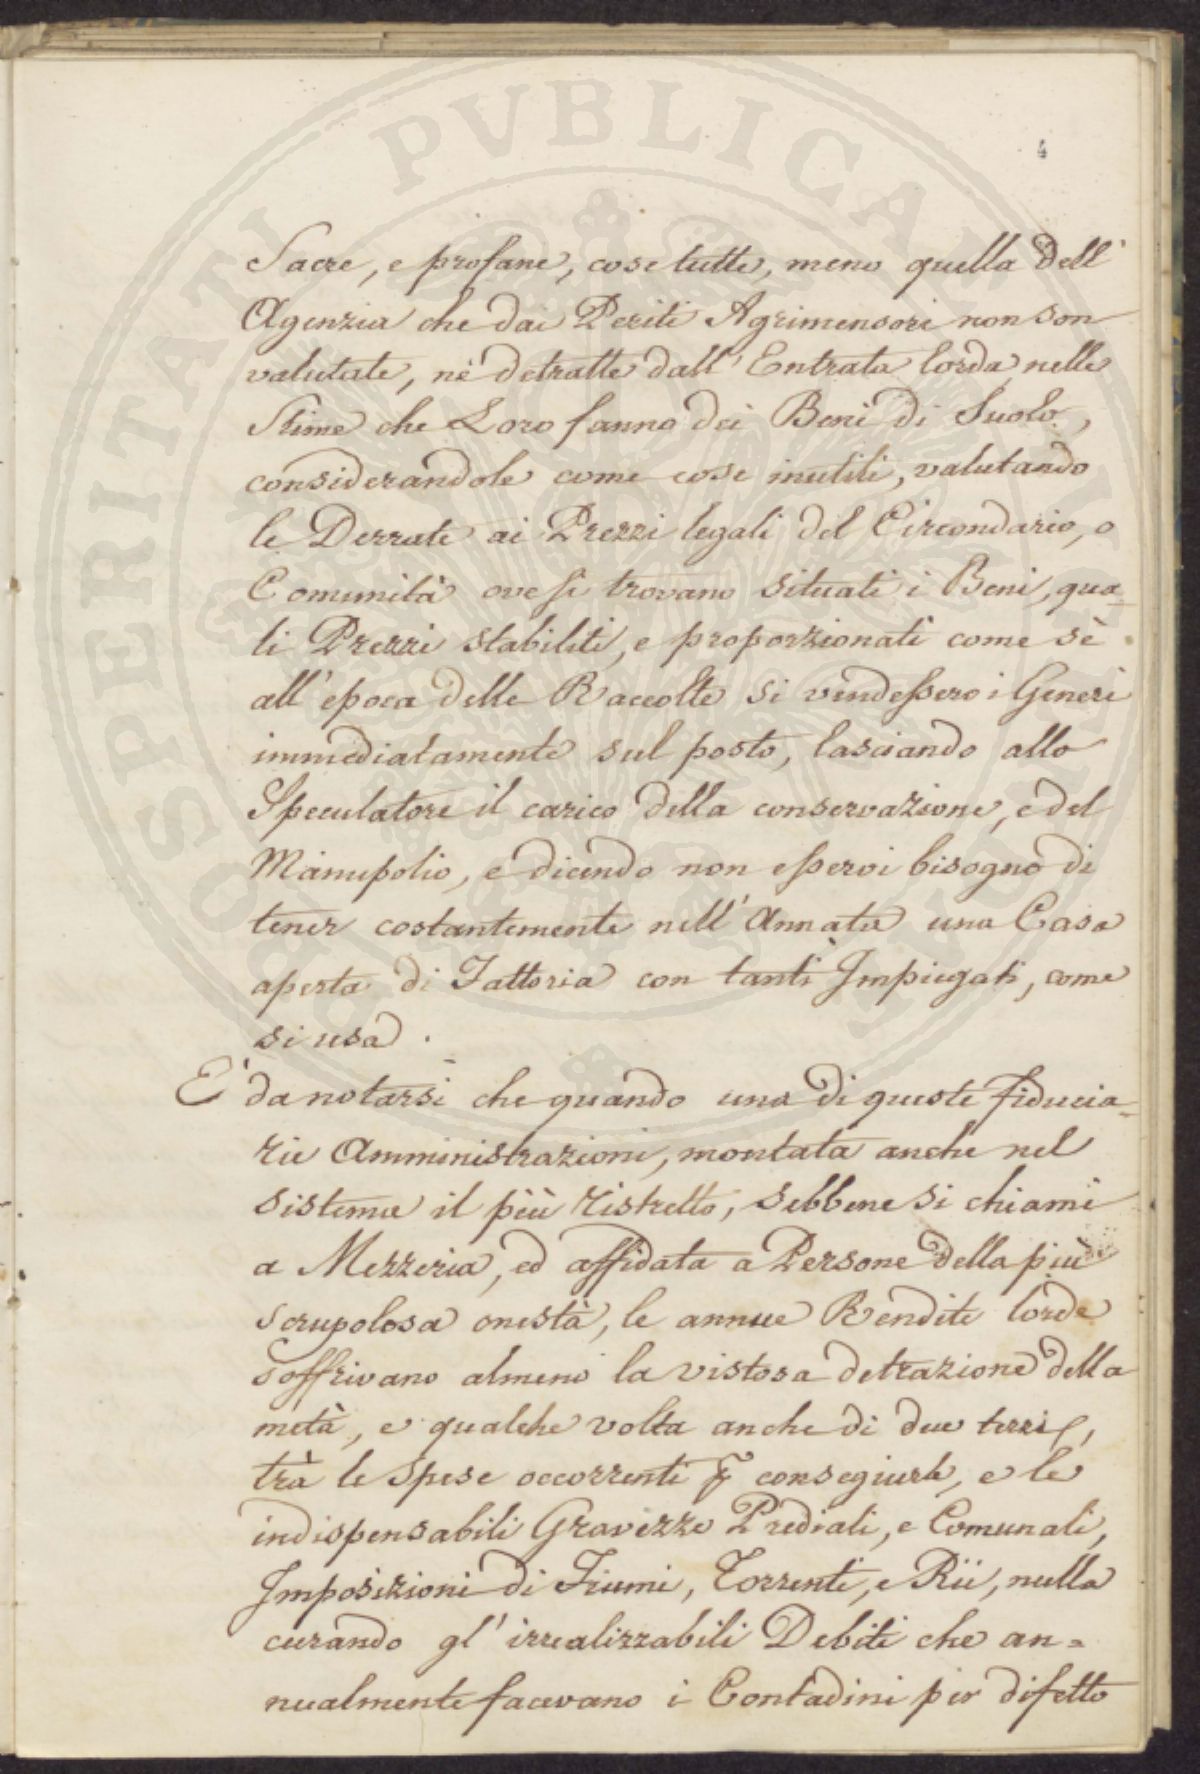 4
Sacre, e profane, cose tutte, meno quella dell'
Agenzia che dai Periti Agrimensori non son
valutate, nè detratte dall'Entrata lorda nelle
Stime che Loro fanno dei Beni di Suolo,
considerandole come cose inutili, valutando
le Derrate ai Prezzi legali del Circondario, o
Comunità ove si trovano situati i Beni, qua=
li Prezzi stabiliti, e proporzionati come sè
all'epoca delle Raccolte si vendessero i Generi
immediatamente sul posto, lasciando allo
Speculatore il carico della conservazione, e del
Manupolio, e dicendo non esservi bisogno di
tener costantemente nell'Annata una Casa
aperta di Fattoria con tanti Impiegati, come
si usa.
E' da notarsi che quando una di queste fiducia=
rie Amministrazioni, montata anche nel
sistema il più ristretto, sebbene si chiami
a Mezzeria, ed affidata a Persone della più
scrupolosa onestà, le annue Rendite lorde
soffrivano almeno la vistosa detrazione della
metà, e qualche volta anche di due terzi,
trà le Spese occorrenti p consegiurle, e le
indispensabili Gravezze Prediali, e Comunali,
Imposizioni di Fiumi, Torrenti, e Rii, nulla
curando gl'irrealizzabili Debiti che an=
nualmente facevano i Contadini per difetto
PROSPERITATI PVBLICAE